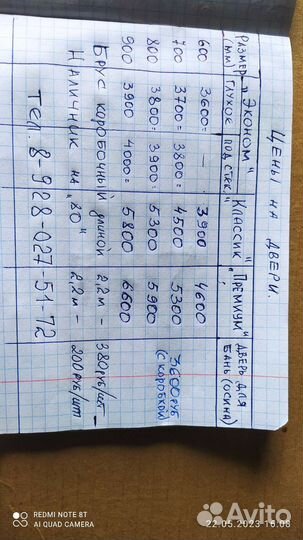 Цены на двери.
Размер (мм) "Эконом" глухое под стек. "Классик" "Премиум" Дверь для бань (осина)
600 3600= — 3900 4600
700 3700= 3800= 4500 5300 3600 руб (с коробкой)
800 3800= 3900= 5300 5900
900 3900 4000= 5800 6600
Брус коробочный длиной 2,2м – 380 руб/шт –
Наличник на "80" 2,2м – 200 руб/шт
тел. 8-928-027-51-72
REDMI NOTE 8T
AI QUAD CAMERA
22.05.2023 16:08
Avito